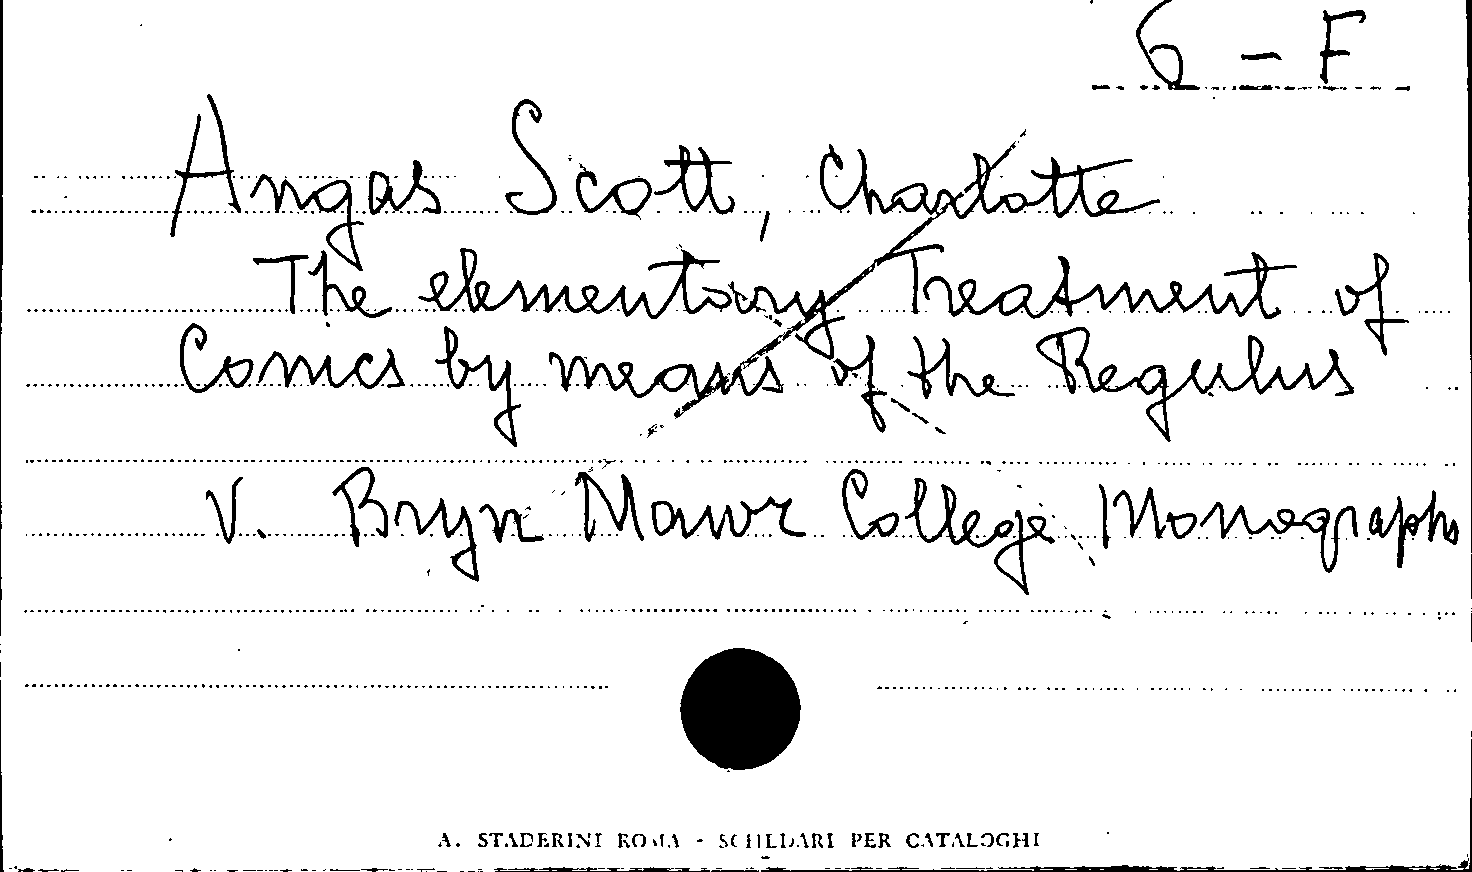 6 - F
Angas Scott, Charlotte
The elementary Treatment of
Conics by means of the Regulus
V. Bryn Mawr College Monographs
A. STADERINI ROMA - SCHEDARI PER CATALOGHI